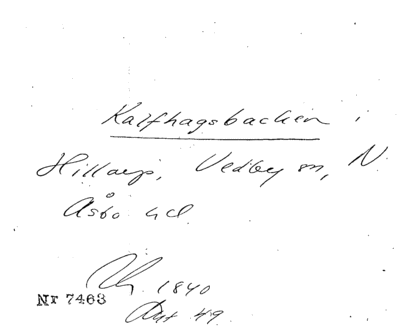 Kalfhagsbacken i
Hillarp, Vedby sn, N.
Åsbo hd
1840
Nr 7463
Akt 49